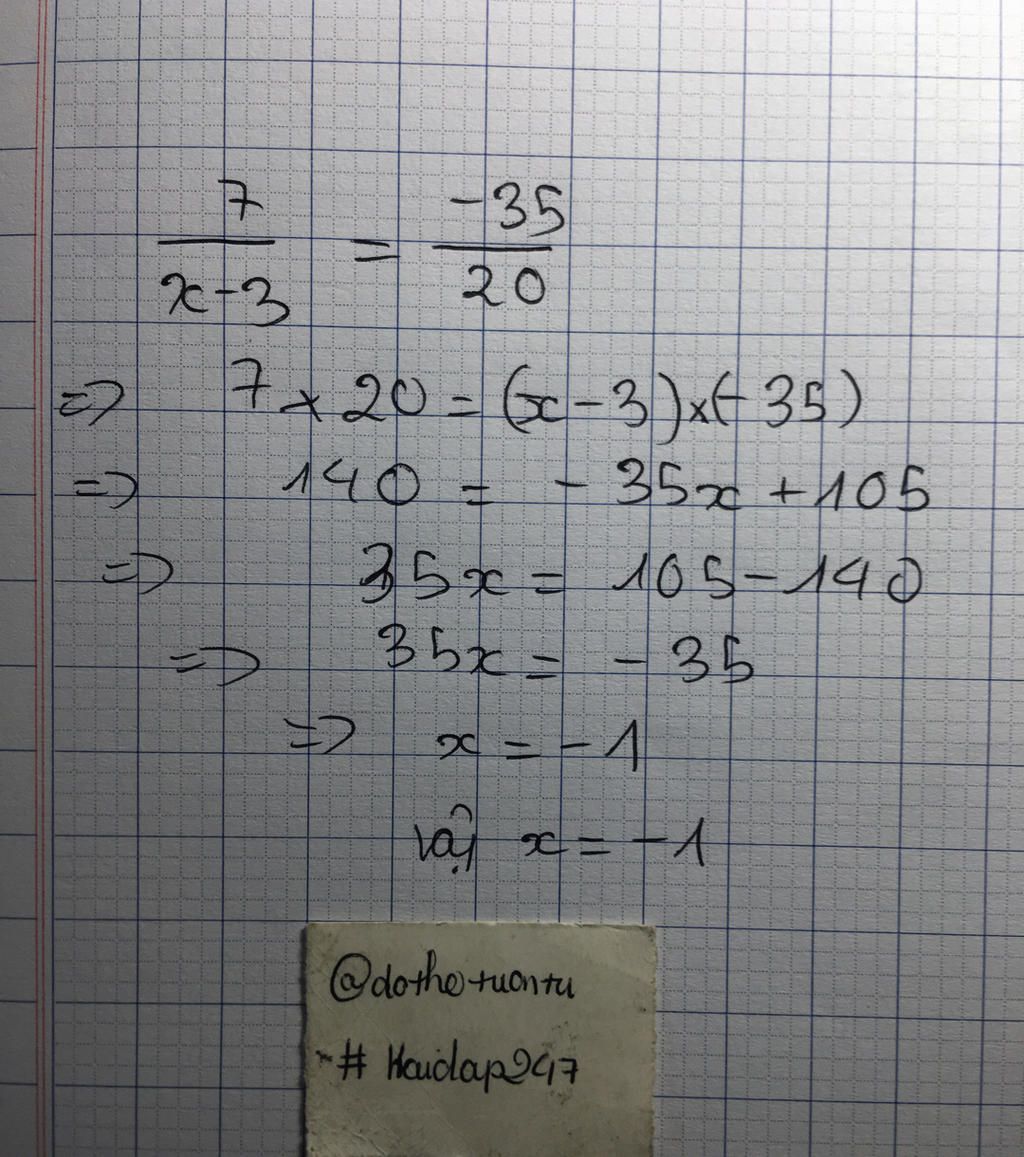 7/(x-3) = -35/20
=> 7 x 20 = (x - 3) x (-35)
=> 140 = - 35x + 105
=> 35x = 105 - 140
=> 35x = - 35
=> x = - 1
Vậy x = - 1
@dothetuantu
# Hoidap247